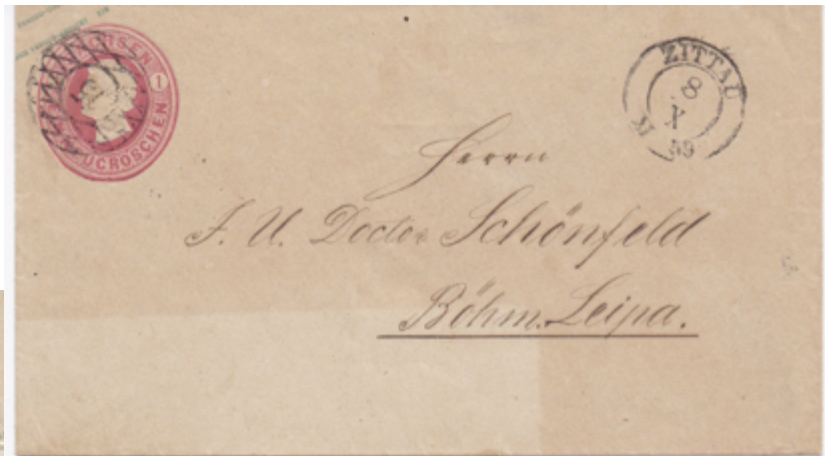 SACHSEN
1
NEUGROSCHEN
ZITTAU
8
X
59
Herrn
J. U. Doctor Schönfeld
Böhm. Leipa.